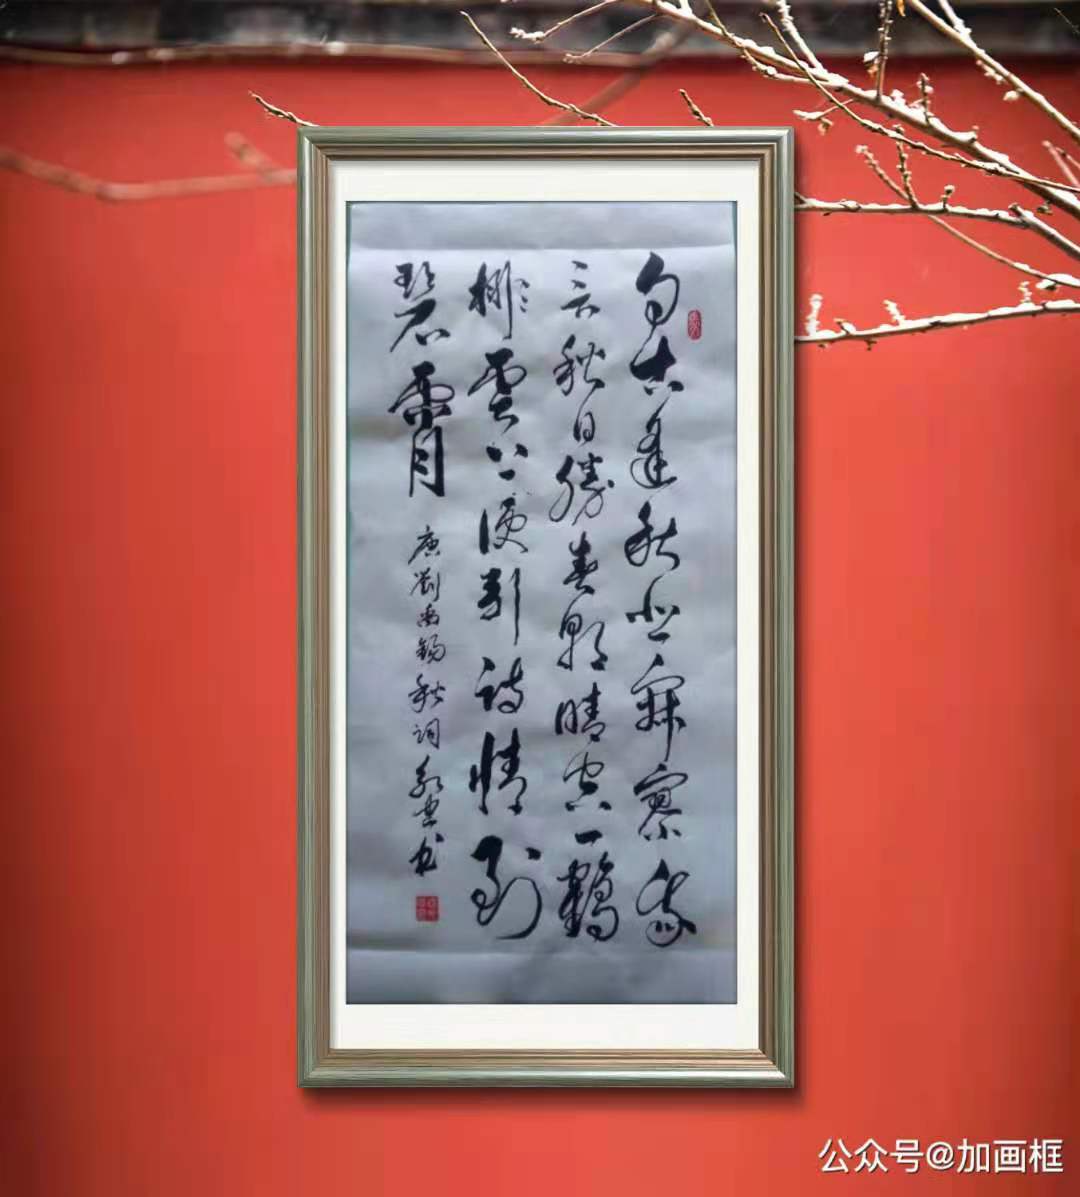 自古逢秋悲寂寥我
言秋日勝春朝晴空一鶴
排雲上便引詩情到
碧霄
唐劉禹錫秋詞 书
公众号@加画框